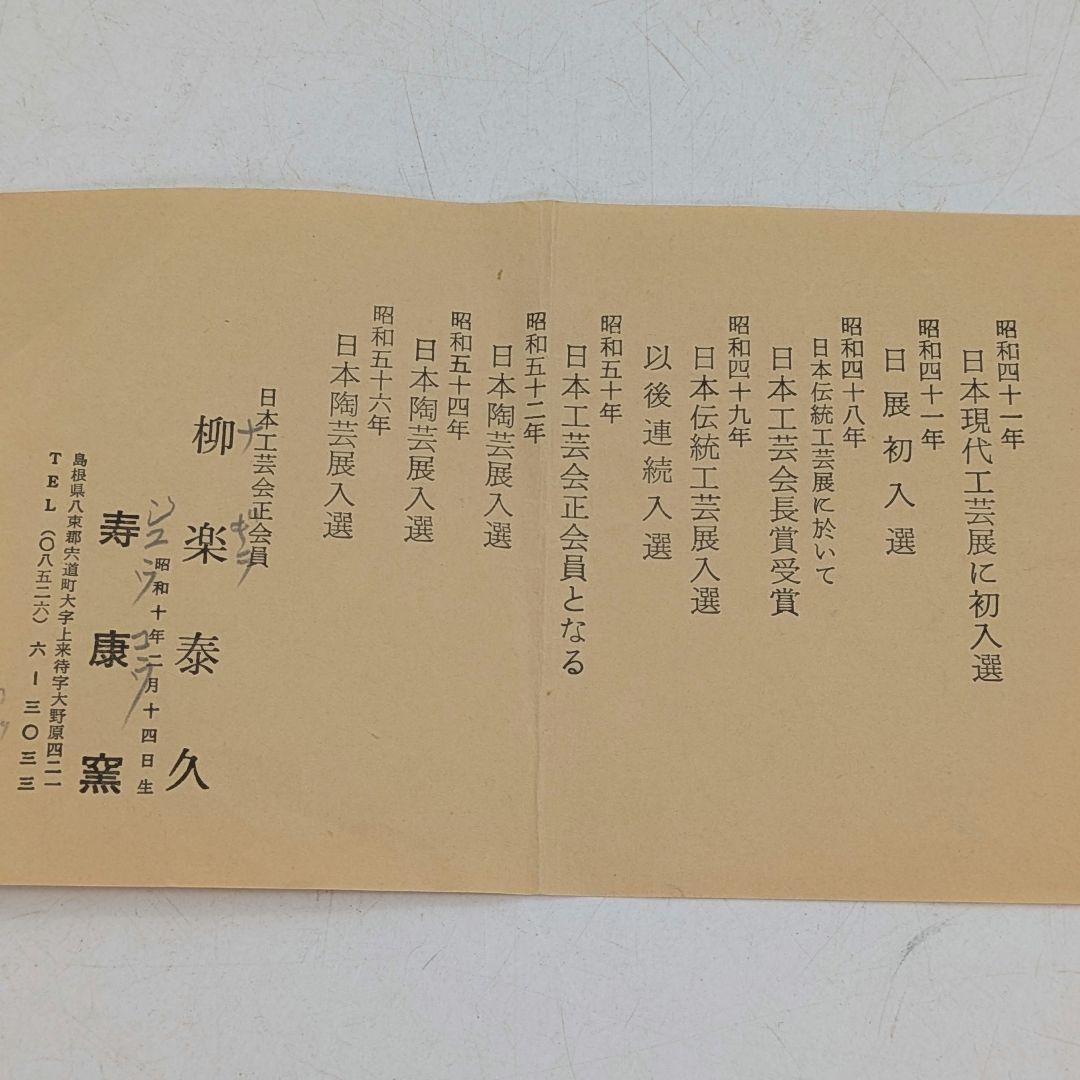 昭和四十一年
日本現代工芸展に初入選
昭和四十一年
日展初入選
昭和四十八年
日本伝統工芸展に於いて
日本工芸会長賞受賞
昭和四十九年
日本伝統工芸展入選
以後連続入選
昭和五十年
日本工芸会正会員となる
昭和五十二年
日本陶芸展入選
昭和五十四年
日本陶芸展入選
昭和五十六年
日本陶芸展入選
日本工芸会正会員
柳楽泰久
昭和十年二月十四日生
ジュウ コウ
寿康窯
島根県八束郡宍道町大字上来待字大野原四二一
TEL(〇八五二六)六ー三〇三三